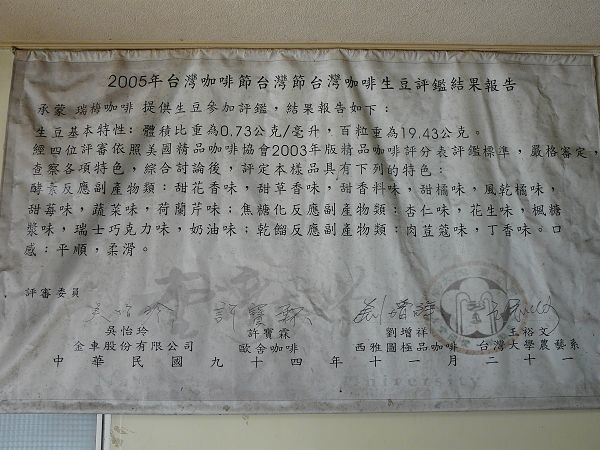 2005年台灣咖啡節台灣節台灣咖啡生豆評鑑結果報告
承蒙 瑞梅咖啡 提供生豆參加評鑑，結果報告如下：
生豆基本特性：體積比重為0.73公克/毫升，百粒重為19.43公克。
經四位評審依照美國精品咖啡協會2003年版精品咖啡評分表評鑑標準，嚴格審定，
查察各項特色，綜合討論後，評定本樣品具有下列的特色：
酵素反應副產物類：甜花香味，甜草香味，甜香料味，甜橘味，風乾橘味，
甜莓味，蔬菜味，荷蘭芹味；焦糖化反應副產物類：杏仁味，花生味，楓糖
漿味，瑞士巧克力味，奶油味；乾餾反應副產物類：肉荳蔻味，丁香味。口
感：平順，柔滑。
評審委員
吳怡玲 許寶霖 劉增祥
吳怡玲 許寶霖 劉增祥 王裕文
金車股份有限公司 歐舍咖啡 西雅圖極品咖啡 台灣大學農藝系
中華民國九十四年十一月二十一